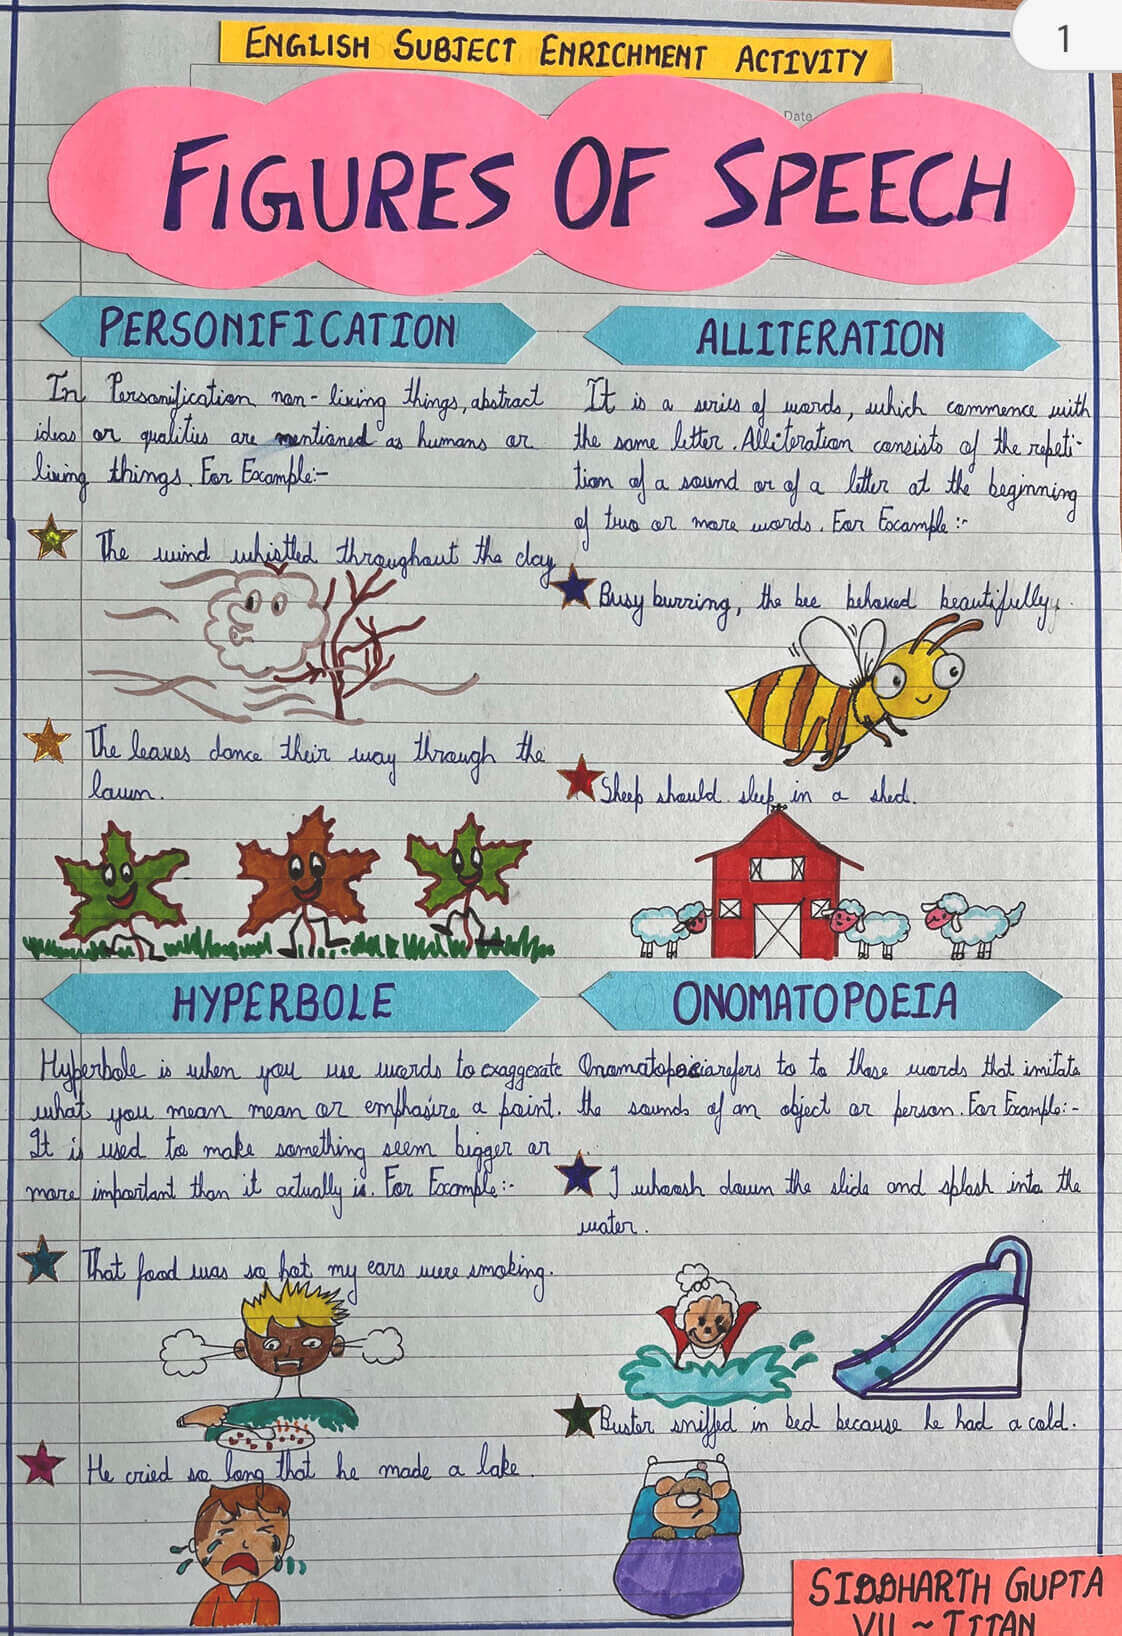 1
ENGLISH SUBJECT ENRICHMENT ACTIVITY
Date
FIGURES OF SPEECH
PERSONIFICATION
In Personification non-living things, abstract
ideas or qualities are mentioned as humans or
living things. For Example:-
The wind whistled throughout the day
The leaves dance their way through the
lawn.
ALLITERATION
It is a series of words, which commence with
the same letter. Alliteration consists of the repeti-
tion of a sound or of a letter at the beginning
of two or more words. For Example:-
Busy burring, the bee behaved beautifully.
Sheep should sleep in a shed.
HYPERBOLE
Hyperbole is when you use words to exaggerate
what you mean mean or emphasize a point.
It is used to make something seem bigger or
more important than it actually is. For Example:-
That food was so hot my ears were smoking.
He cried so long that he made a lake.
ONOMATOPOEIA
Onomatopoeia refers to to those words that imitate
the sounds of an object or person. For Example:-
I whoosh down the slide and splash into the
water.
Buster sniffed in bed because he had a cold.
SIDDHARTH GUPTA
VII ~ TITAN